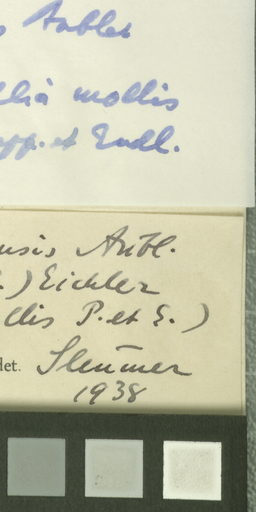 Aublet
mollis
et Endl.
nsis Aubl.
.) Eichler
llis P. et E. )
det. Sleumer
1938